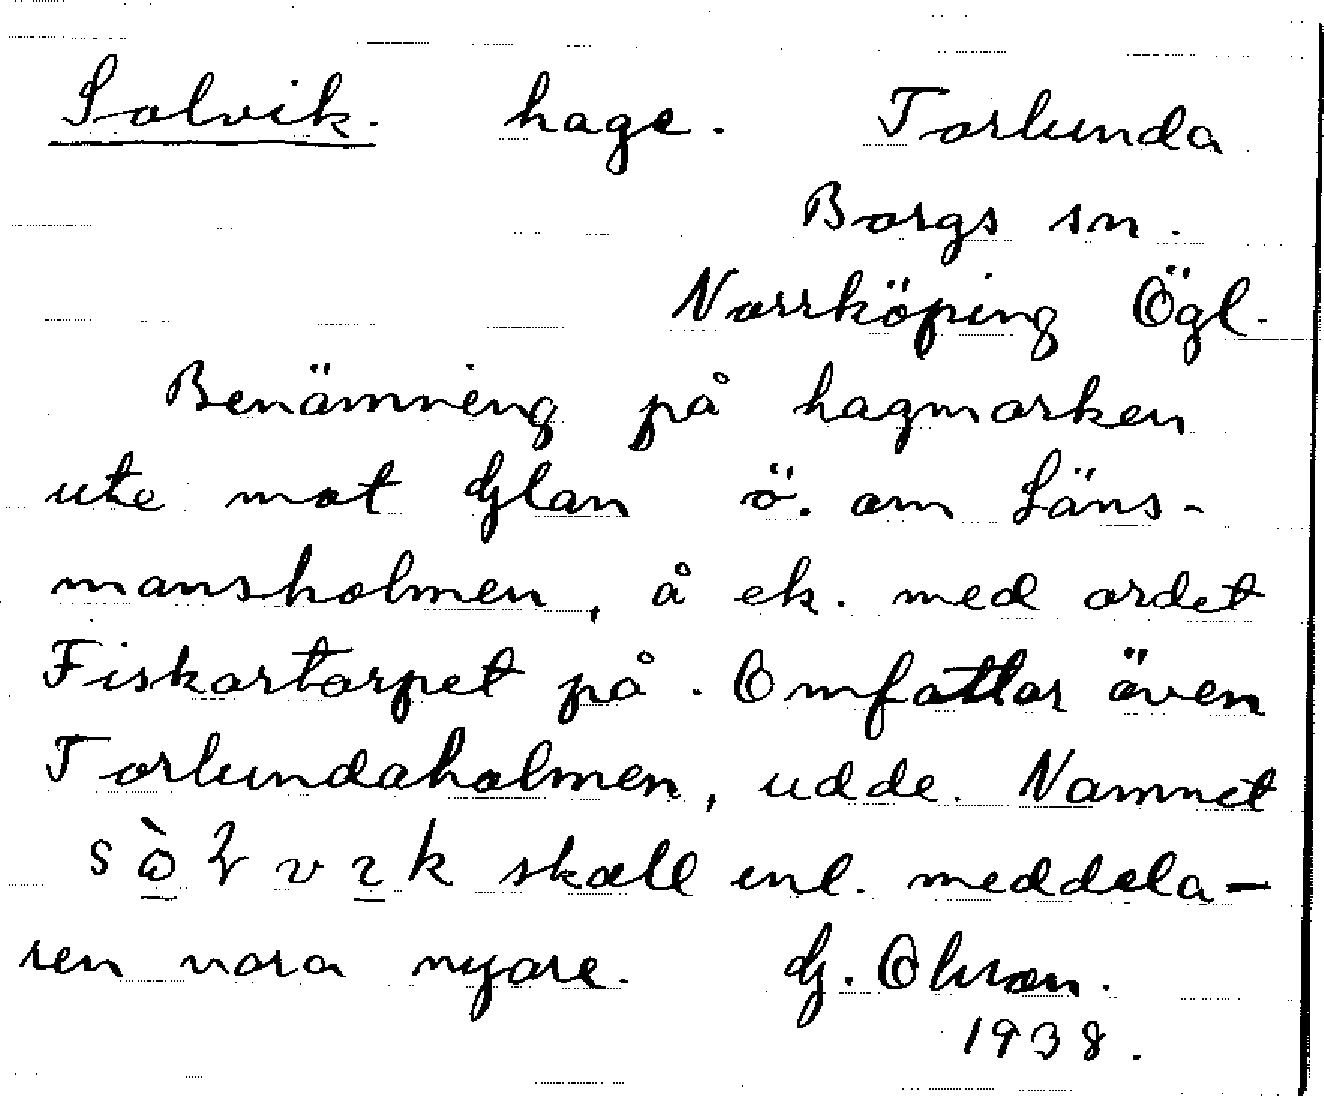 Solvik. hage. Torlunda
Borgs sn.
Norrköping Ögl.
Benämning på hagmarken
ute mot Glan ö. om Läns-
mansholmen, å ek. med ordet
Fiskartorpet på. Omfattar även
Torlundaholmen, udde. Namnet
skall enl. meddela-
ren vara nyare. G. Olsson.
1938.